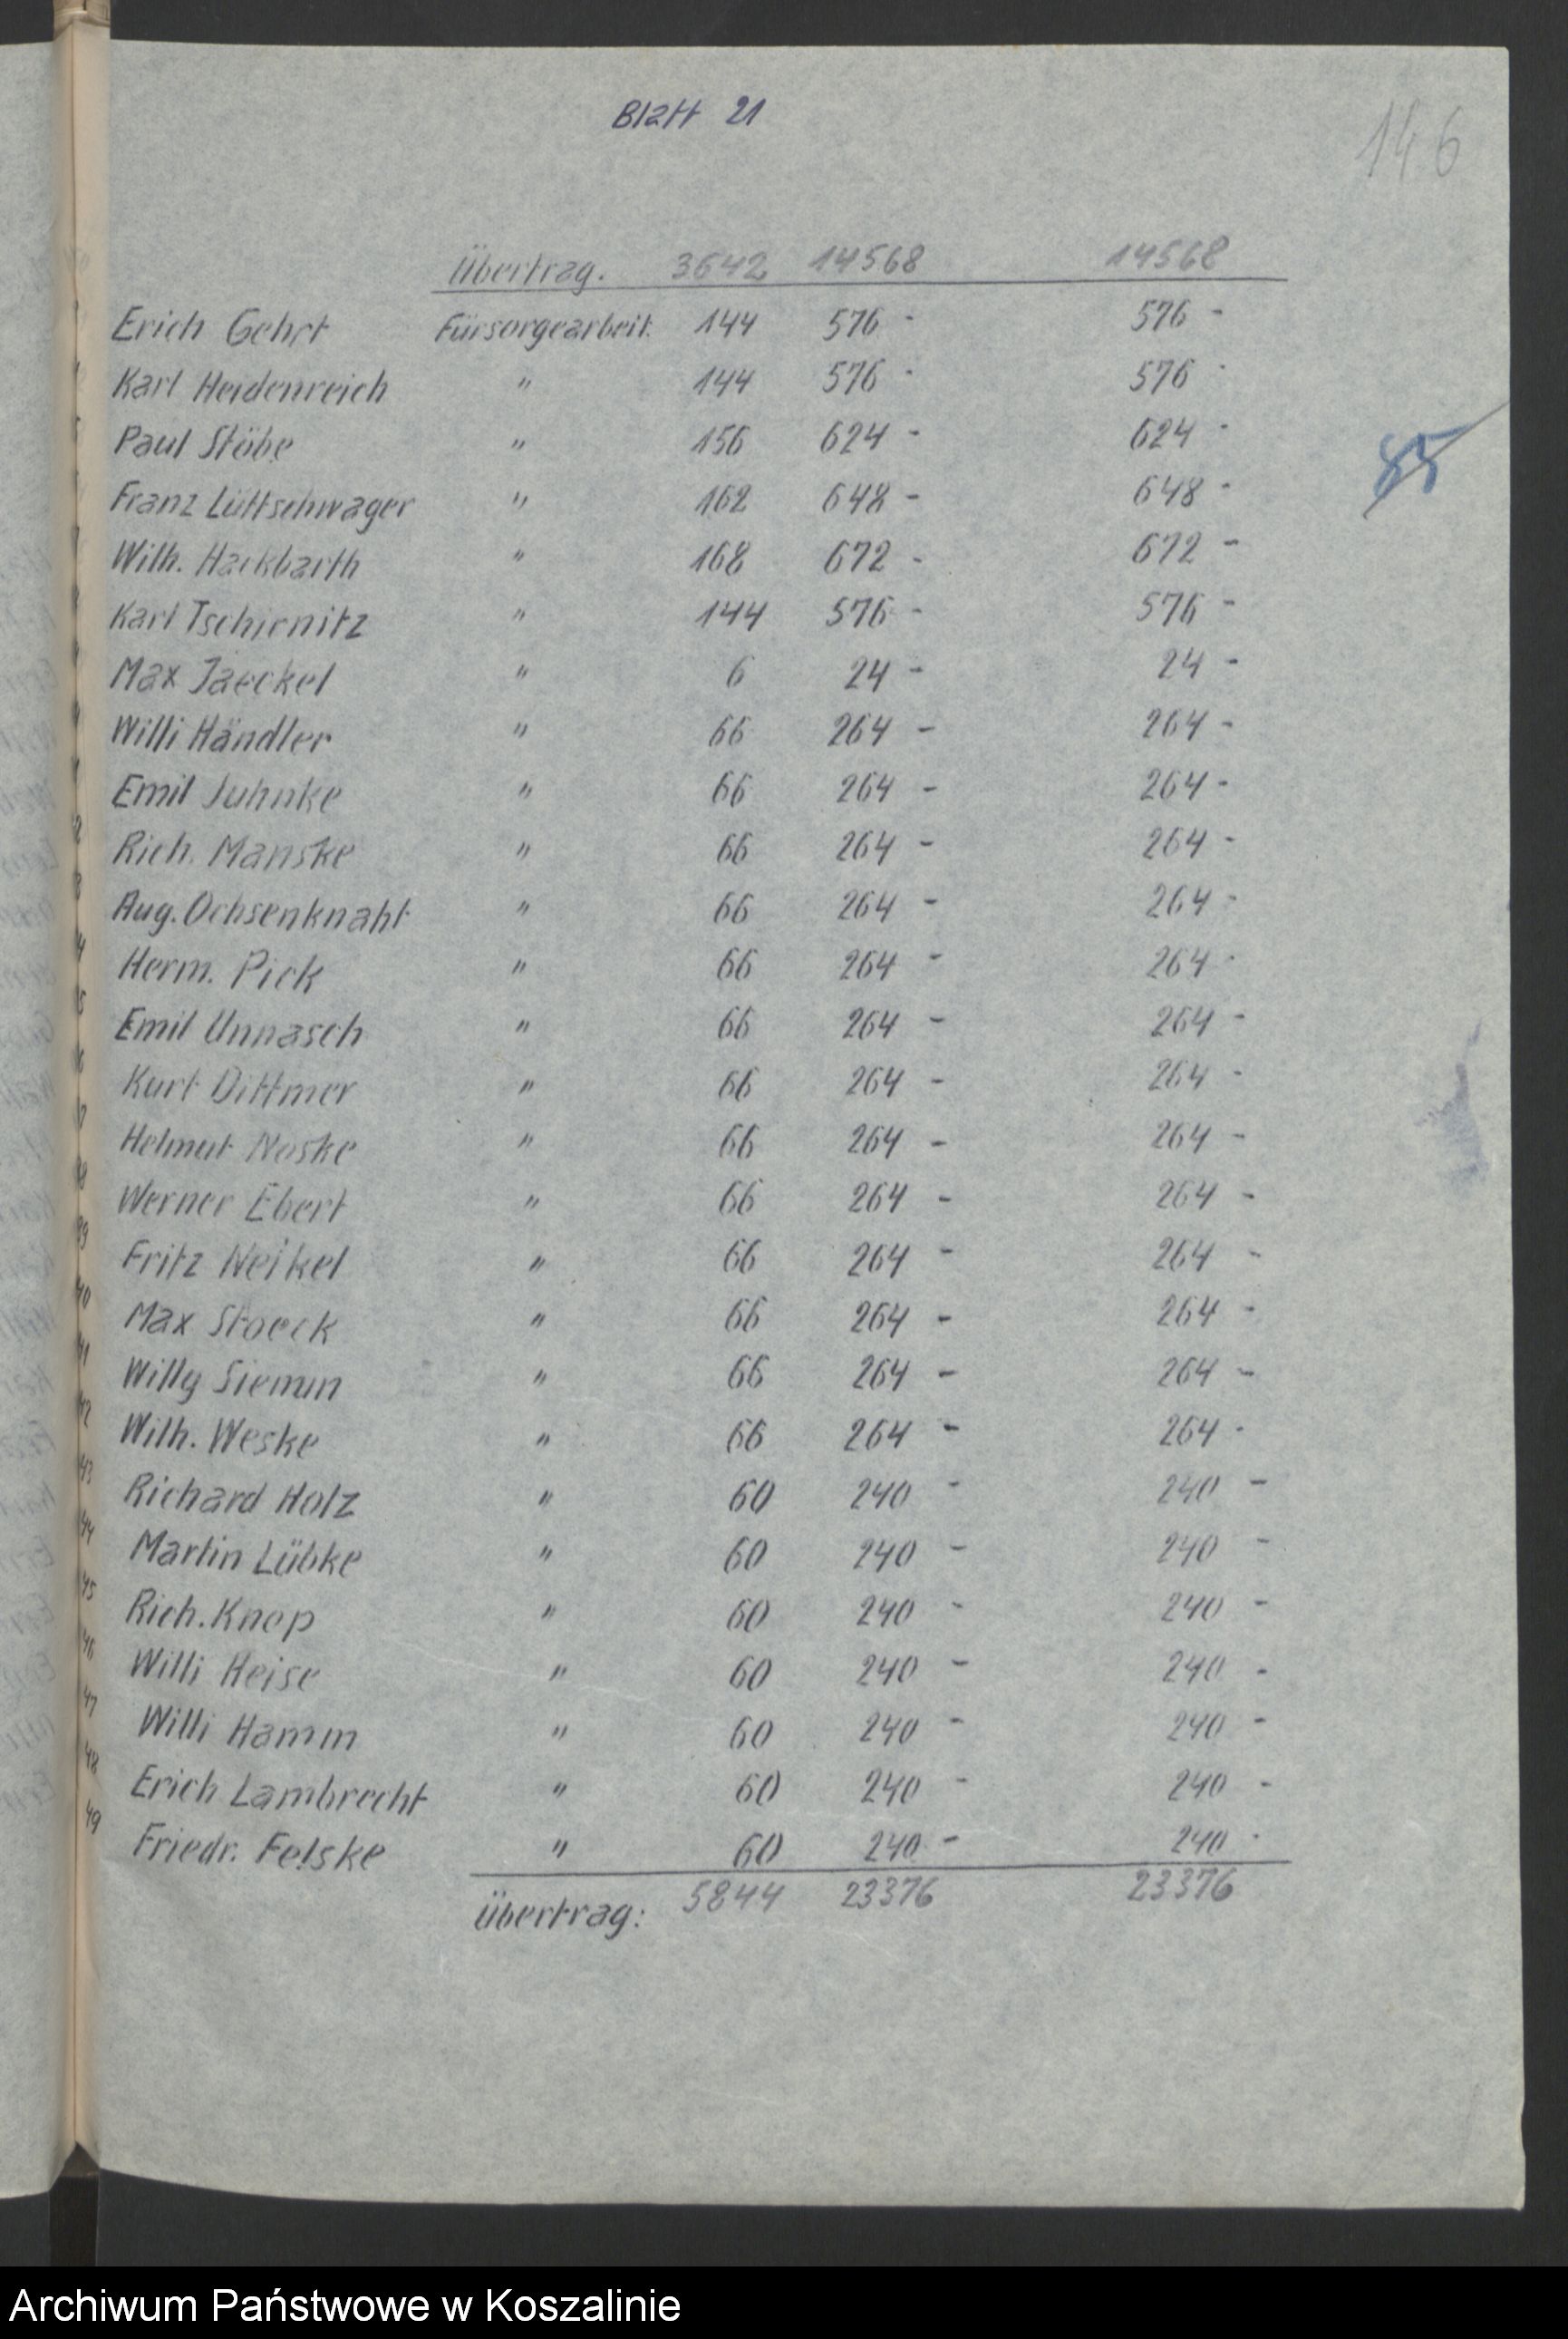 Blatt 21
146
Übertrag. 3642 14568 14568
Erich Gehrt Fürsorgearbeit. 144 576 - 576 -
Karl Heidenreich " 144 576 - 576 -
Paul Stöbe " 156 624 - 624 -
85
Franz Lüttschwager " 162 648 - 648 -
Wilh. Hackbarth " 168 672 - 672 -
Karl Tschirnitz " 144 576 - 576 -
Max Jaeckel " 6 24 - 24 -
Willi Händler " 66 264 - 264 -
Emil Juhnke " 66 264 - 264 -
Rich. Manske " 66 264 - 264 -
Aug. Ochsenknaht " 66 264 - 264 -
Herm. Pick " 66 264 - 264 -
Emil Unnasch " 66 264 - 264 -
Kurt Dittmer " 66 264 - 264 -
Helmut Noske " 66 264 - 264 -
Werner Ebert " 66 264 - 264 -
39 Fritz Weikel " 66 264 - 264 -
40 Max Stoeck " 66 264 - 264 -
41 Willy Siemun " 66 264 - 264 -
42 Wilh. Weske " 66 264 - 264 -
43 Richard Holz " 60 240 - 240 -
44 Martin Lübke " 60 240 - 240 -
45 Rich. Knop " 60 240 - 240 -
46 Willi Heise " 60 240 - 240 -
47 Willi Hamm " 60 240 - 240 -
48 Erich Lambrecht " 60 240 - 240 -
49 Friedr. Felske " 60 240 - 240 -
Übertrag: 5844 23376 23376
Archiwum Państwowe w Koszalinie